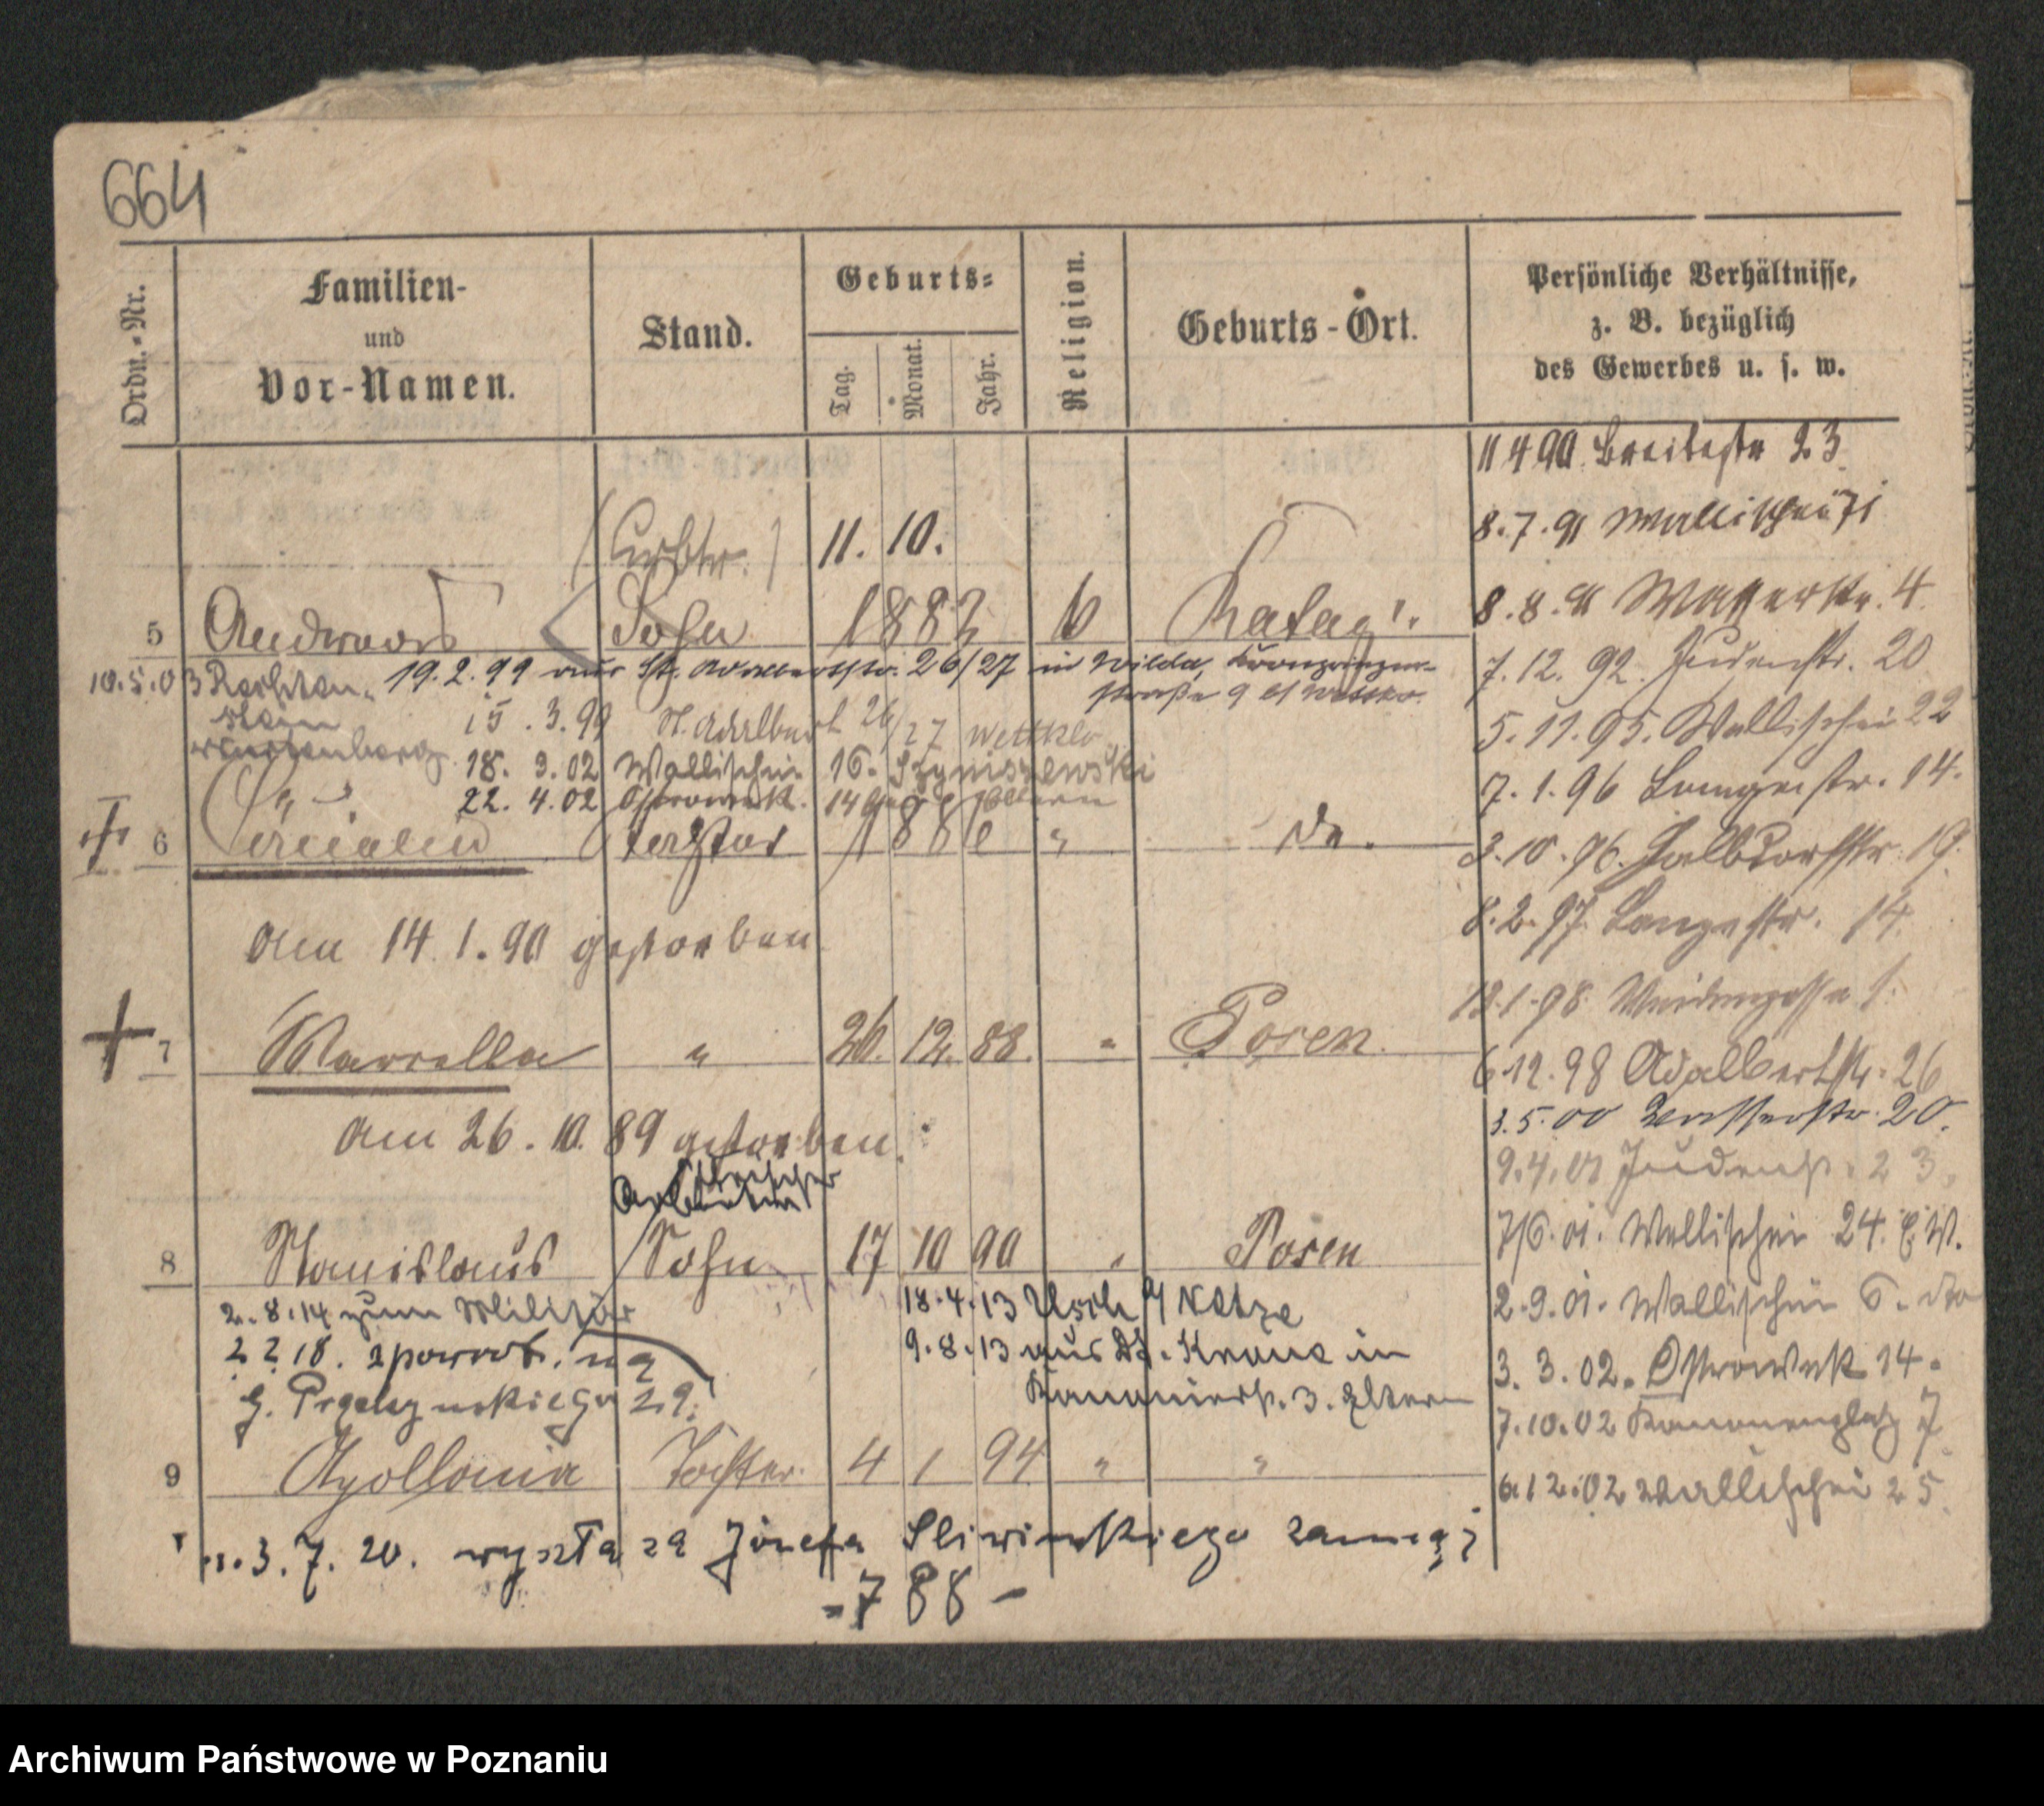 664
Ordn.-Nr.
Familien-
und
Vor-Namen.
Stand.
Geburts-
Tag.
Monat.
Jahr.
Religion.
Geburts-Ort.
Persönliche Verhältnisse,
z. B. bezüglich
des Gewerbes u. s. w.
11 4 90. Breitestr 23.
11. 10.
8.7.91 Wallischei 71
5 Andreas Sohn 1882 Rataj
8.8.91 Wasserstr. 4.
10.5.03 19.2.99 aus St. Adalbertstr. 26/27 in Wilda, Kronprinzen-
straße 9
7.12.92. Judenstr. 20
15.3.99 St. Adalbert 26/27
5.11.95. Wallischei 22
18. 3.02 Wallischei 16. Szymiszewski
7.1.96 Langestr. 14.
22. 4.02 Ostrowek. 14
6 Tochter 188 " do.
3.10.96. Halbdorfstr. 19.
8.2.97. Langestr. 14.
am 14.1.90 gestorben.
98. Weidengasse
7 " 26. 12. 88. " Posen.
6.12.98 Adalbertstr. 26
3.5.00 Wasserstr. 20.
am 26.10.89 gestorben.
9.4.01 Judenstr. 23.
Arbeiter
8 Stanislaus Sohn 17 10 90 " Posen
7/6.01. Wallischei 24. E.W.
2.8.14 zum Militär
18.4.13 Usch a/ Netze
2.9.01. Wallischei 6. do
2 2 18. z powrot. na
9.8.13 aus Dt. Krone in
3.3.02. Ostrowek 14.
29.
Kanonierstr. 3. Eltern
7.10.02 Kanonenplatz 7
9 Apollonia Tochter. 4 1 94 " "
6.12.02 Wallischei 25.
3.7.20. wyszła za Józefa Sliwinskiego zamąż
- 788 -
Archiwum Państwowe w Poznaniu